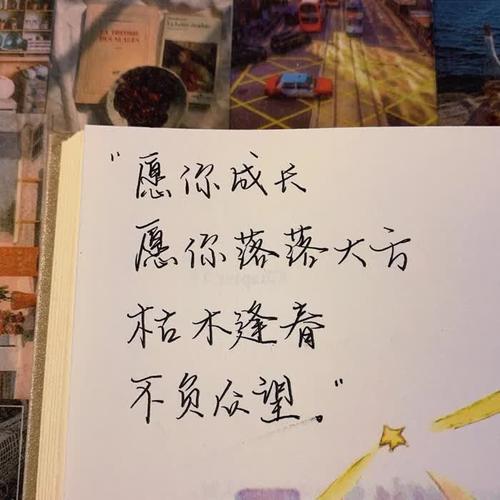 LA THÉORIE
DES NUAGES
"愿你成长
愿你落落大方
枯木逢春
不负众望。"